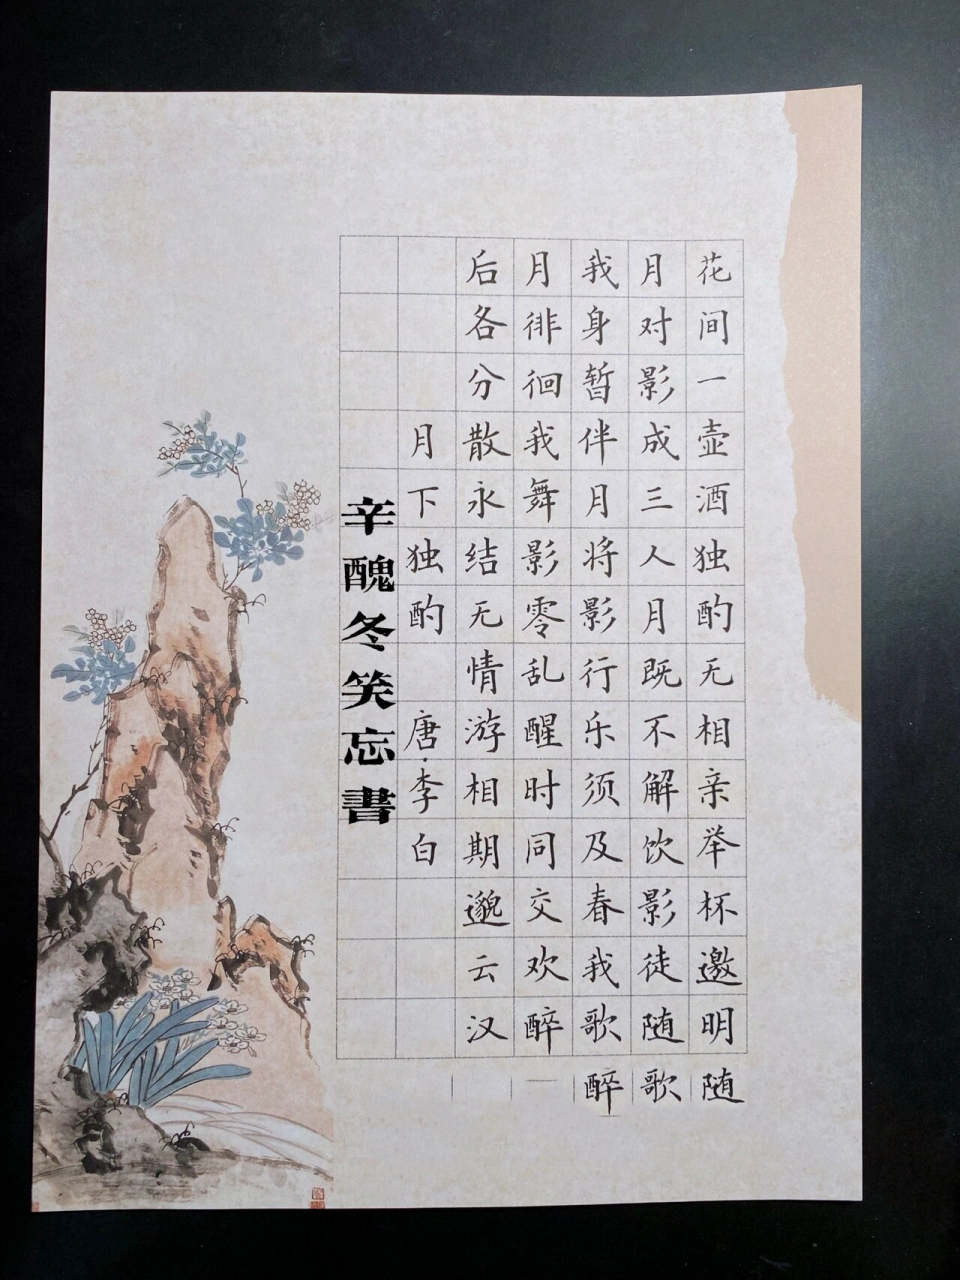 花间一壶酒独酌无相亲举杯邀明随
月对影成三人月既不解饮影徒随歌
我身暂伴月将影行乐须及春我歌醉
月徘徊我舞影零乱醒时同交欢醉
后各分散永结无情游相期邈云汉
月下独酌 唐·李白
辛醜冬笑忘書